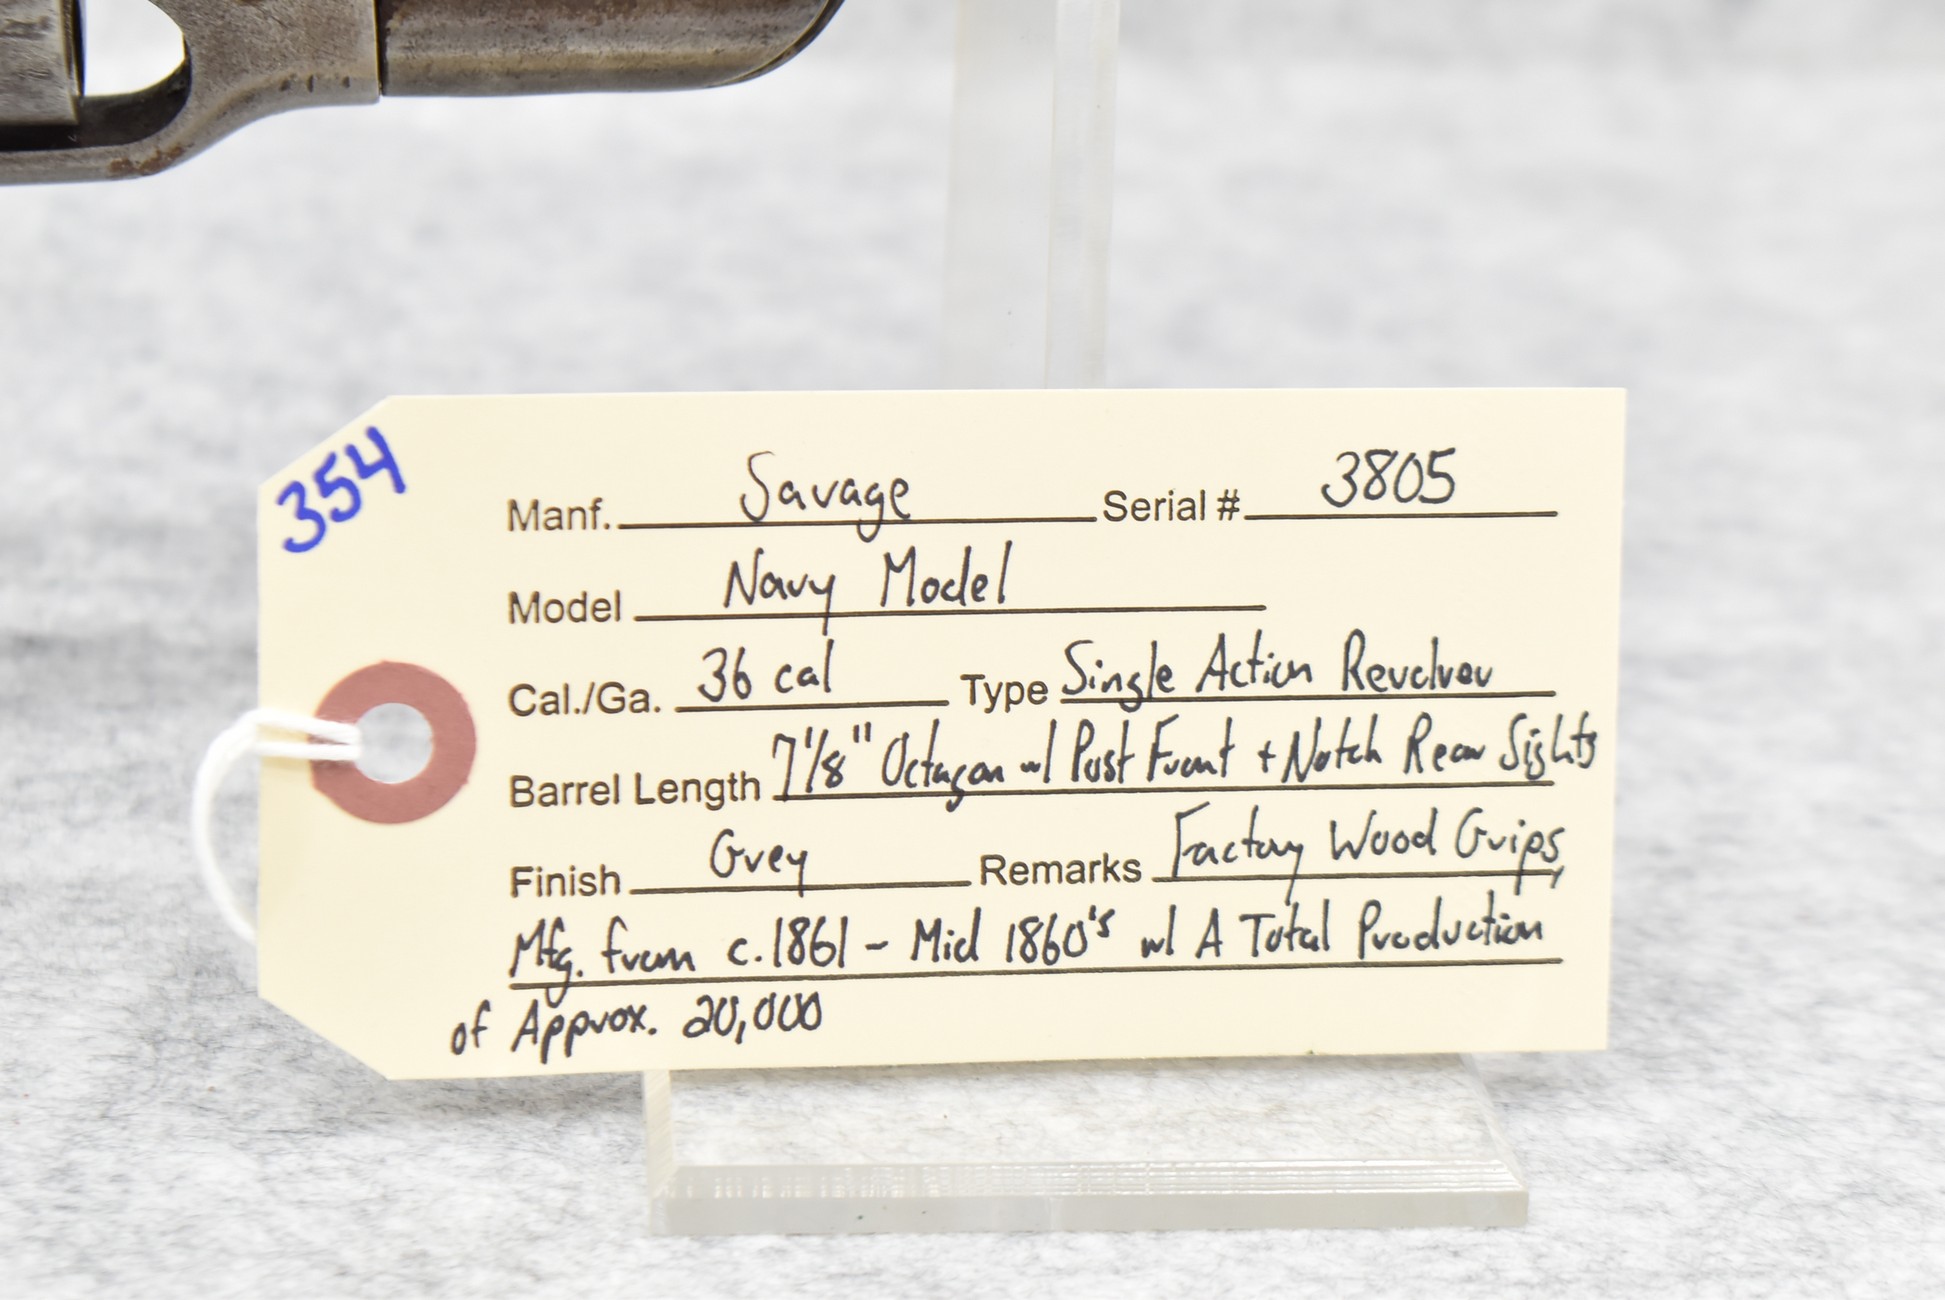 354
Manf. Savage Serial # 3805
Model Navy Model
Cal./Ga. 36 cal Type Single Action Revolver
Barrel Length 7 1/8" Octagon w/ Post Front + Notch Rear Sights
Finish Grey Remarks Factory Wood Grips,
Mfg. from c.1861 - Mid 1860's w/ A Total Production
of Approx. 20,000